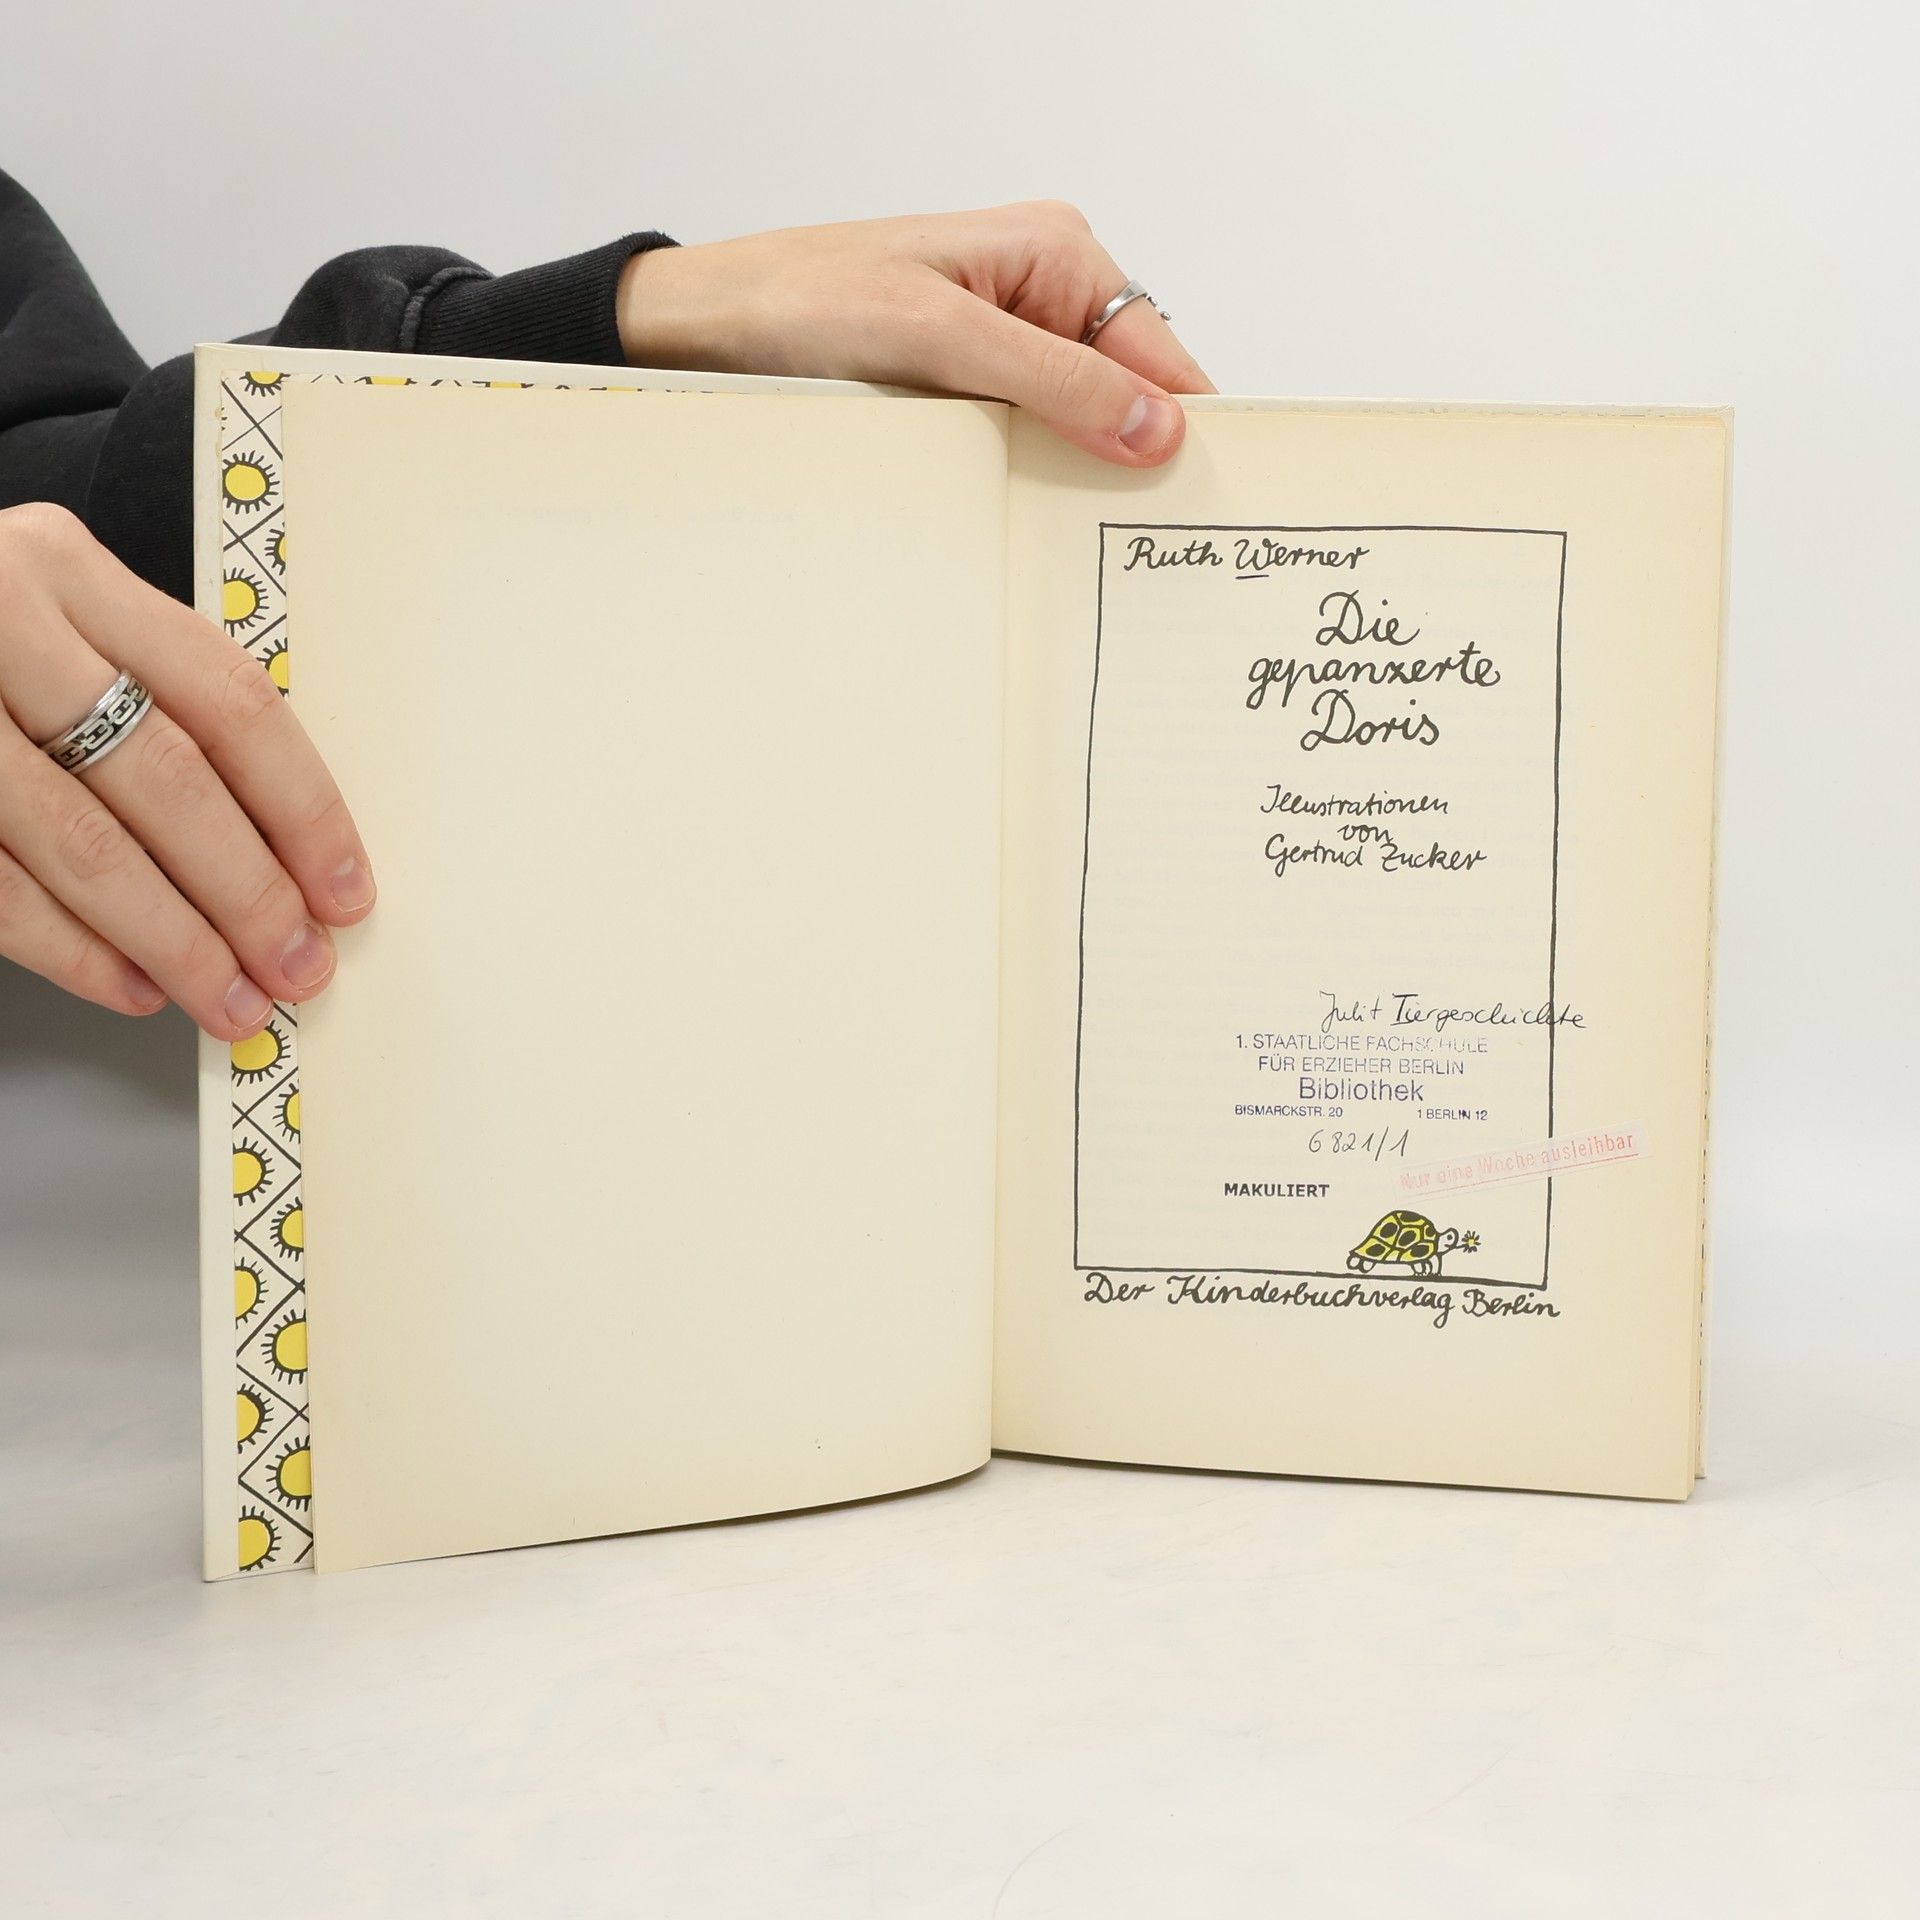 Ruth Werner
Die
gepanzerte
Doris
Illustrationen
von
Gertrud Zucker
Julit Tiergeschichte
1. STAATLICHE FACHSCHULE
FÜR ERZIEHER BERLIN
Bibliothek
BISMARCKSTR. 20 1 BERLIN 12
6821/1
Nur eine Woche ausleihbar
MAKULIERT
Der Kinderbuchverlag Berlin